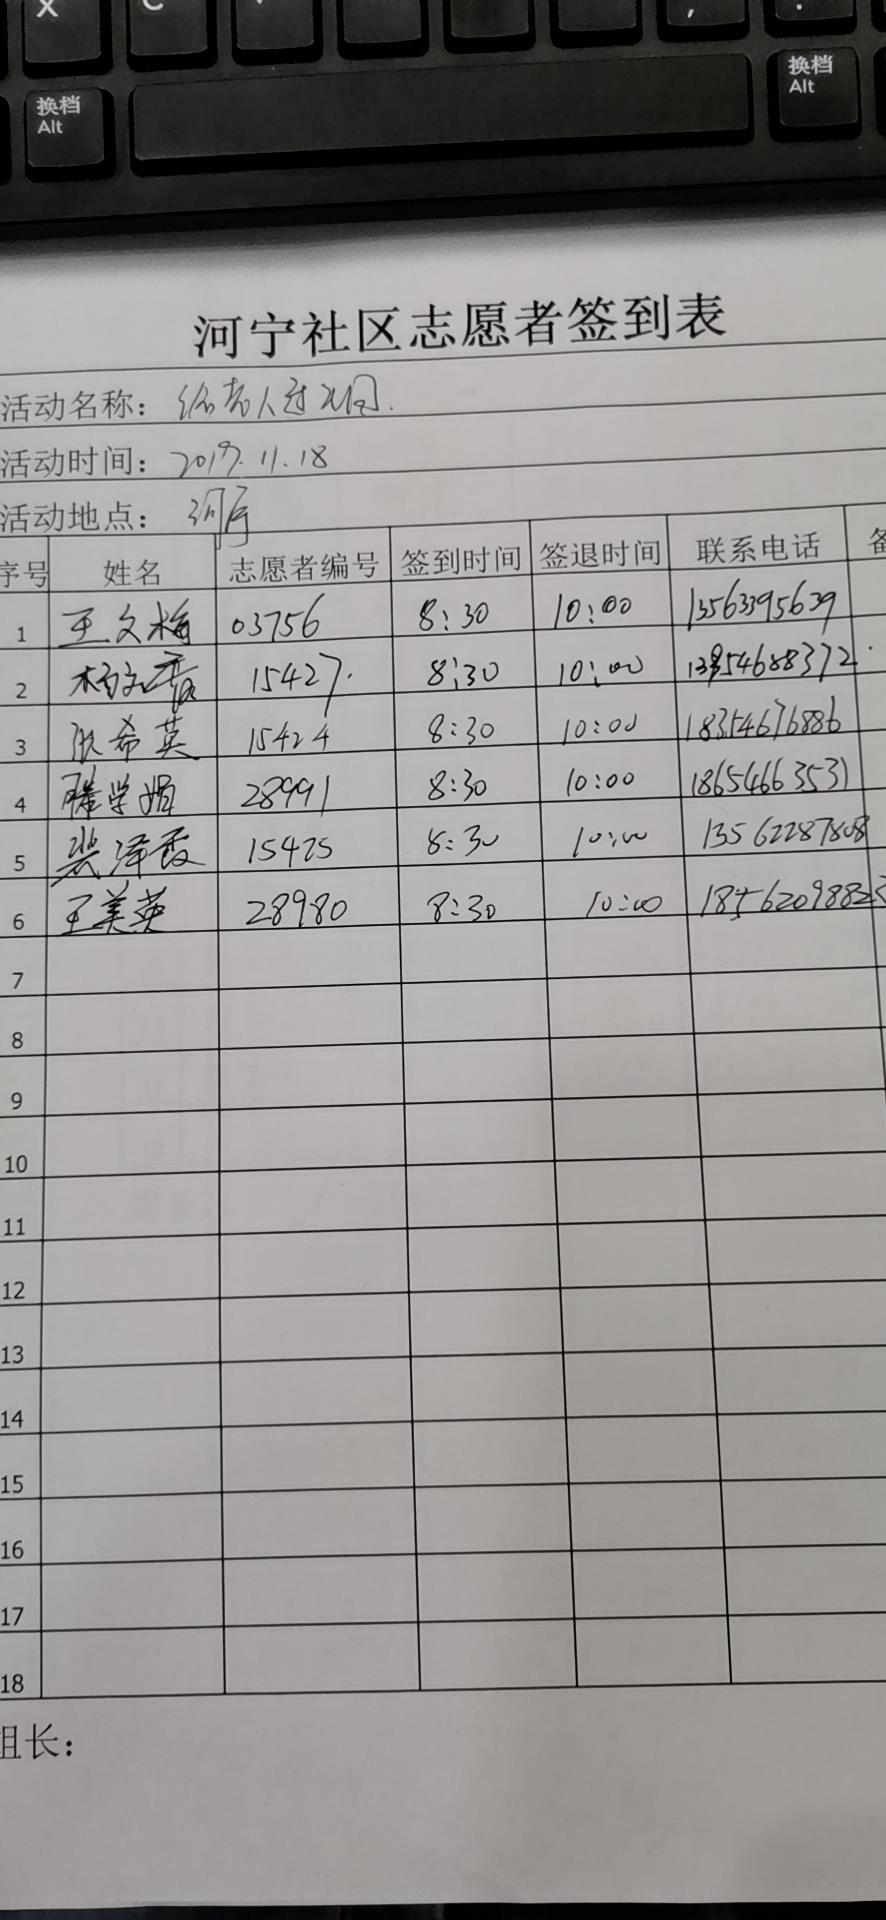 X C , .
换档 换档
Alt Alt
河宁社区志愿者签到表
活动名称：给老人过
活动时间：2019.11.18
活动地点：河宁
序号 姓名 志愿者编号 签到时间 签退时间 联系电话 备
1 王文梅 03756 8:30 10:00 13563395639
2 15427. 8:30 10:00 13854688372.
3 张希英 15424 8:30 10:00 18354676886
4 滕学娟 28991 8:30 10:00 18654663531
5 裴泽霞 15425 8:30 10:00 13562287808
6 王美英 28980 8:30 10:00 1856209882
7
8
9
10
11
12
13
14
15
16
17
18
组长：